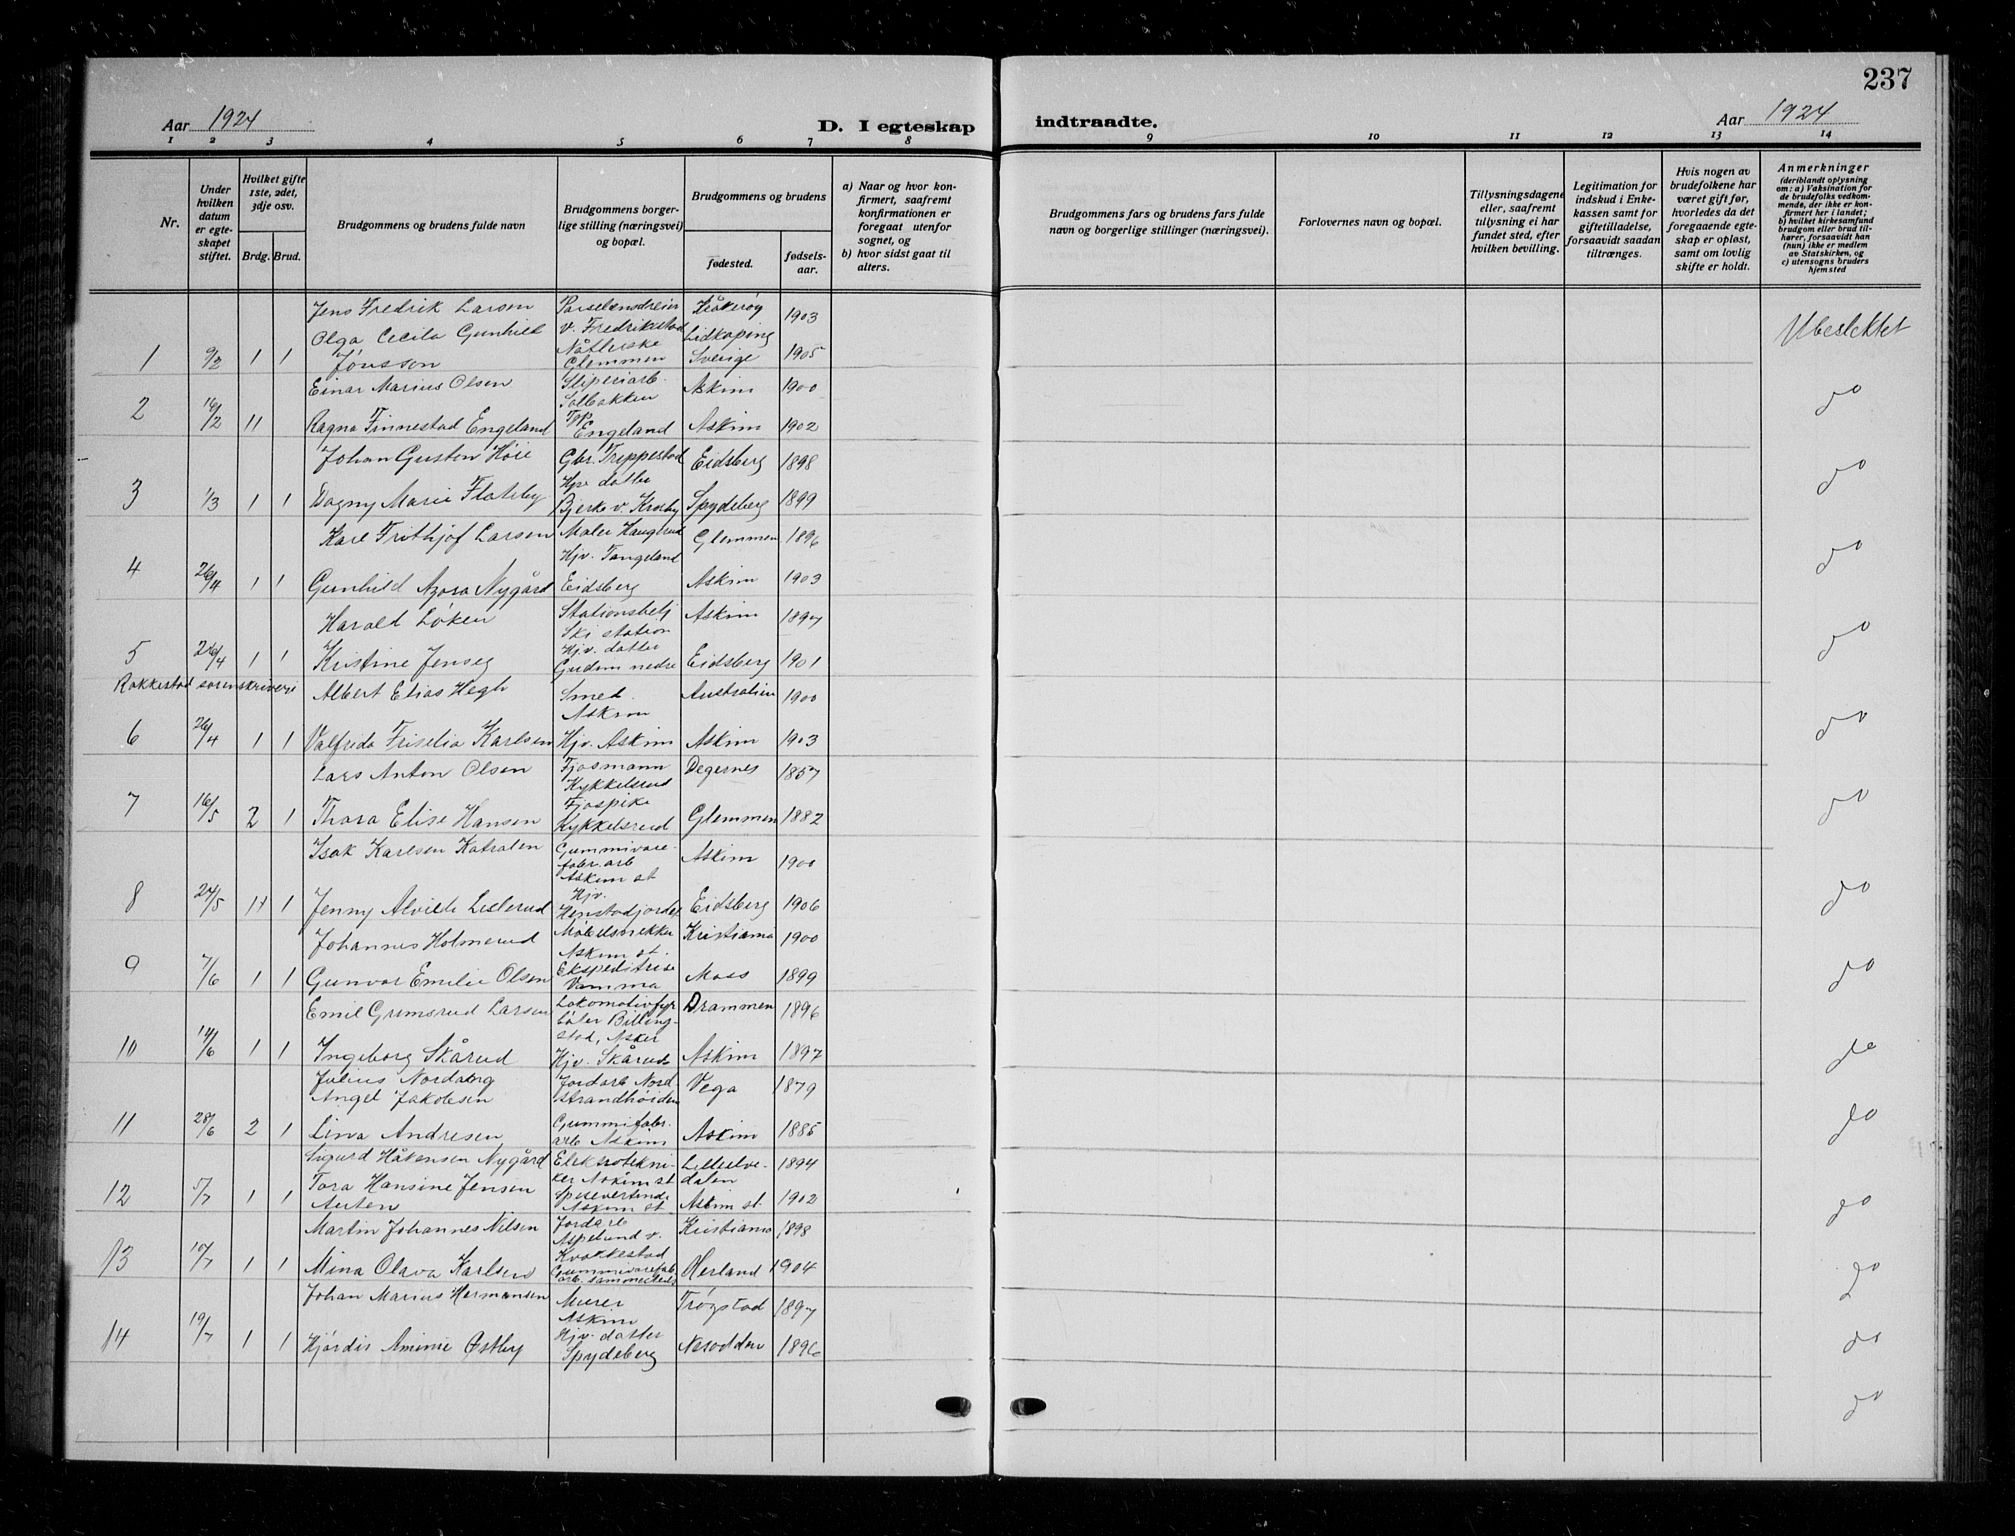 237
Aar 1924
D. I egteskap
indtraadte.
Aar 1924
1 2 3 4 5 6 7 8 9 10 11 12 13 14
Nr.
Under hvilken datum er egteskapet stiftet.
Hvilket gifte 1ste, 2det, 3dje osv.
Brdg. Brud.
Brudgommens og brudens fulde navn
Brudgommens borgerlige stilling (næringsvei) og bopæl.
Brudgommens og brudens
fødested.
fødselsaar.
a) Naar og hvor konfirmert, saafremt konfirmationen er foregaat utenfor sognet, og
b) hvor sidst gaat til alters.
Brudgommens fars og brudens fars fulde navn og borgerlige stillinger (næringsvei).
Forlovernes navn og bopæl.
Tillysningsdagene eller, saafremt tillysning ei har fundet sted, efter hvilken bevilling.
Legitimation for indskud i Enkekassen samt for giftetilladelse, forsaavidt saadan tiltrænges.
Hvis nogen av brudefolkene har været gift før, hvorledes da det foregaaende egteskap er opløst, samt om lovlig skifte er holdt.
Anmerkninger
(deriblandt oplysning om: a) Vaksination for de brudefolks vedkommende, der ikke er konfirmert her i landet;
b) hvilket kirkesamfund brudgom eller brud tilhører, forsaavidt han (hun) ikke er medlem av Statskirken, og
c) utensogns bruders hjemsted
Jens Fredrik Larsen
v. Fredrikstad
1903
Olga Cecilia Gunhild
Lidkøping
1 9/2 1 1 Jonsson Glemmen Sverige 1905 Ubeslektet
Einar Marius Olsen Sliperiarb. Solbakken Askim 1900
2 16/2 11 Ragna Finnestad Engeland Engeland Askim 1902 do
Johan Gusten Høie Gbr. Trippestad Eidsberg 1898
3 1/3 1 1 Dagny Marie Flateby datter Bjerke v. Spydeberg 1899 do
Karl Frithjof Larsen Maler Haugerud Glemmen 1896
4 26/4 1 1 Gunhild Nygård Hjv. Tangeland Eidsberg Askim 1903 do
Harald Løken Stationsbetj Ski station Askim 1897
5 26/4 1 1 Kristine Jenseg Hjv. datter Gudem nedre Eidsberg 1901 do
Rakkestad sorenskriveri
Albert Elias Hegh Smed. Askim Australien 1900
6 26/4 1 1 Valfrida Friselia Karlsen Hjv. Askim Askim 1903 do
Lars Anton Olsen Fjøsmann Kykkelsrud Degernes 1857
7 16/5 2 1 Thora Elise Hansen Fjøspike Kykkelsrud Glemmen 1882 do
Isak Karlsen Katralen Gummivarefabr.arb Askim st Askim 1900
8 24/5 1 1 Jenny Alvilde Hjv. Eidsberg 1906 do
Johannes Holmerud Møbelsnekker Askim st. Kristiania 1900
9 7/6 1 1 Gunvor Emilie Olsen Ekspeditrise Vamma Moss 1899 do
Emil Gremsrud Larsen Lokomotivfyrbøter Billingstad, Asker Drammen 1896
10 14/6 1 1 Ingeborg Skårud Hjv. Skårud Askim 1897 do
Julius Nordaberg Angel Jakobsen Jordarb Nordstrandhøiden Vega 1879
11 28/6 2 1 Lina Andresen Gummifabr. arb Askim Askim 1885 do
Sigurd Håkensen Nygård Elektrotekniker Askim st 1894
12 5/7 1 1 Tora Hansine Jensen Auten Askim st Askim st. 1902 do
Martin Johannes Nilsen Jordarb Aspelund v. Kristiania 1898
13 10/7 1 1 Mina Olava Karlsen Gummivarefab. arb. sammesteds Herland 1904 do
Johan Marius Hermansen Murer Askim Trøgstad 1897
14 19/7 1 1 Hjørdis Aminie Østby Hjv. datter Spydeberg Nesodden 1896 do
do